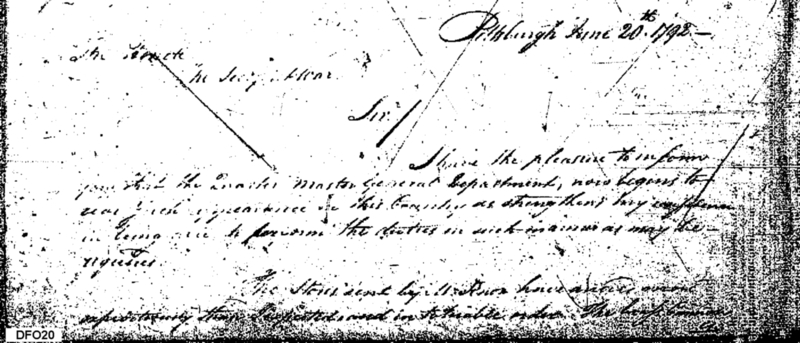 Pittsburgh June 20th. 1792.—
The Secy of War
Sir,
I have the pleasure to inform
you that the Quarter Master General Department, now begins to
such appearance in this Country as strengthens my confidence
in being able to perform the duties in such manner as may be
required
The Stores sent by Mr Knox have arrived more
expeditiously than I expected and in tolerable order. The
DFO20